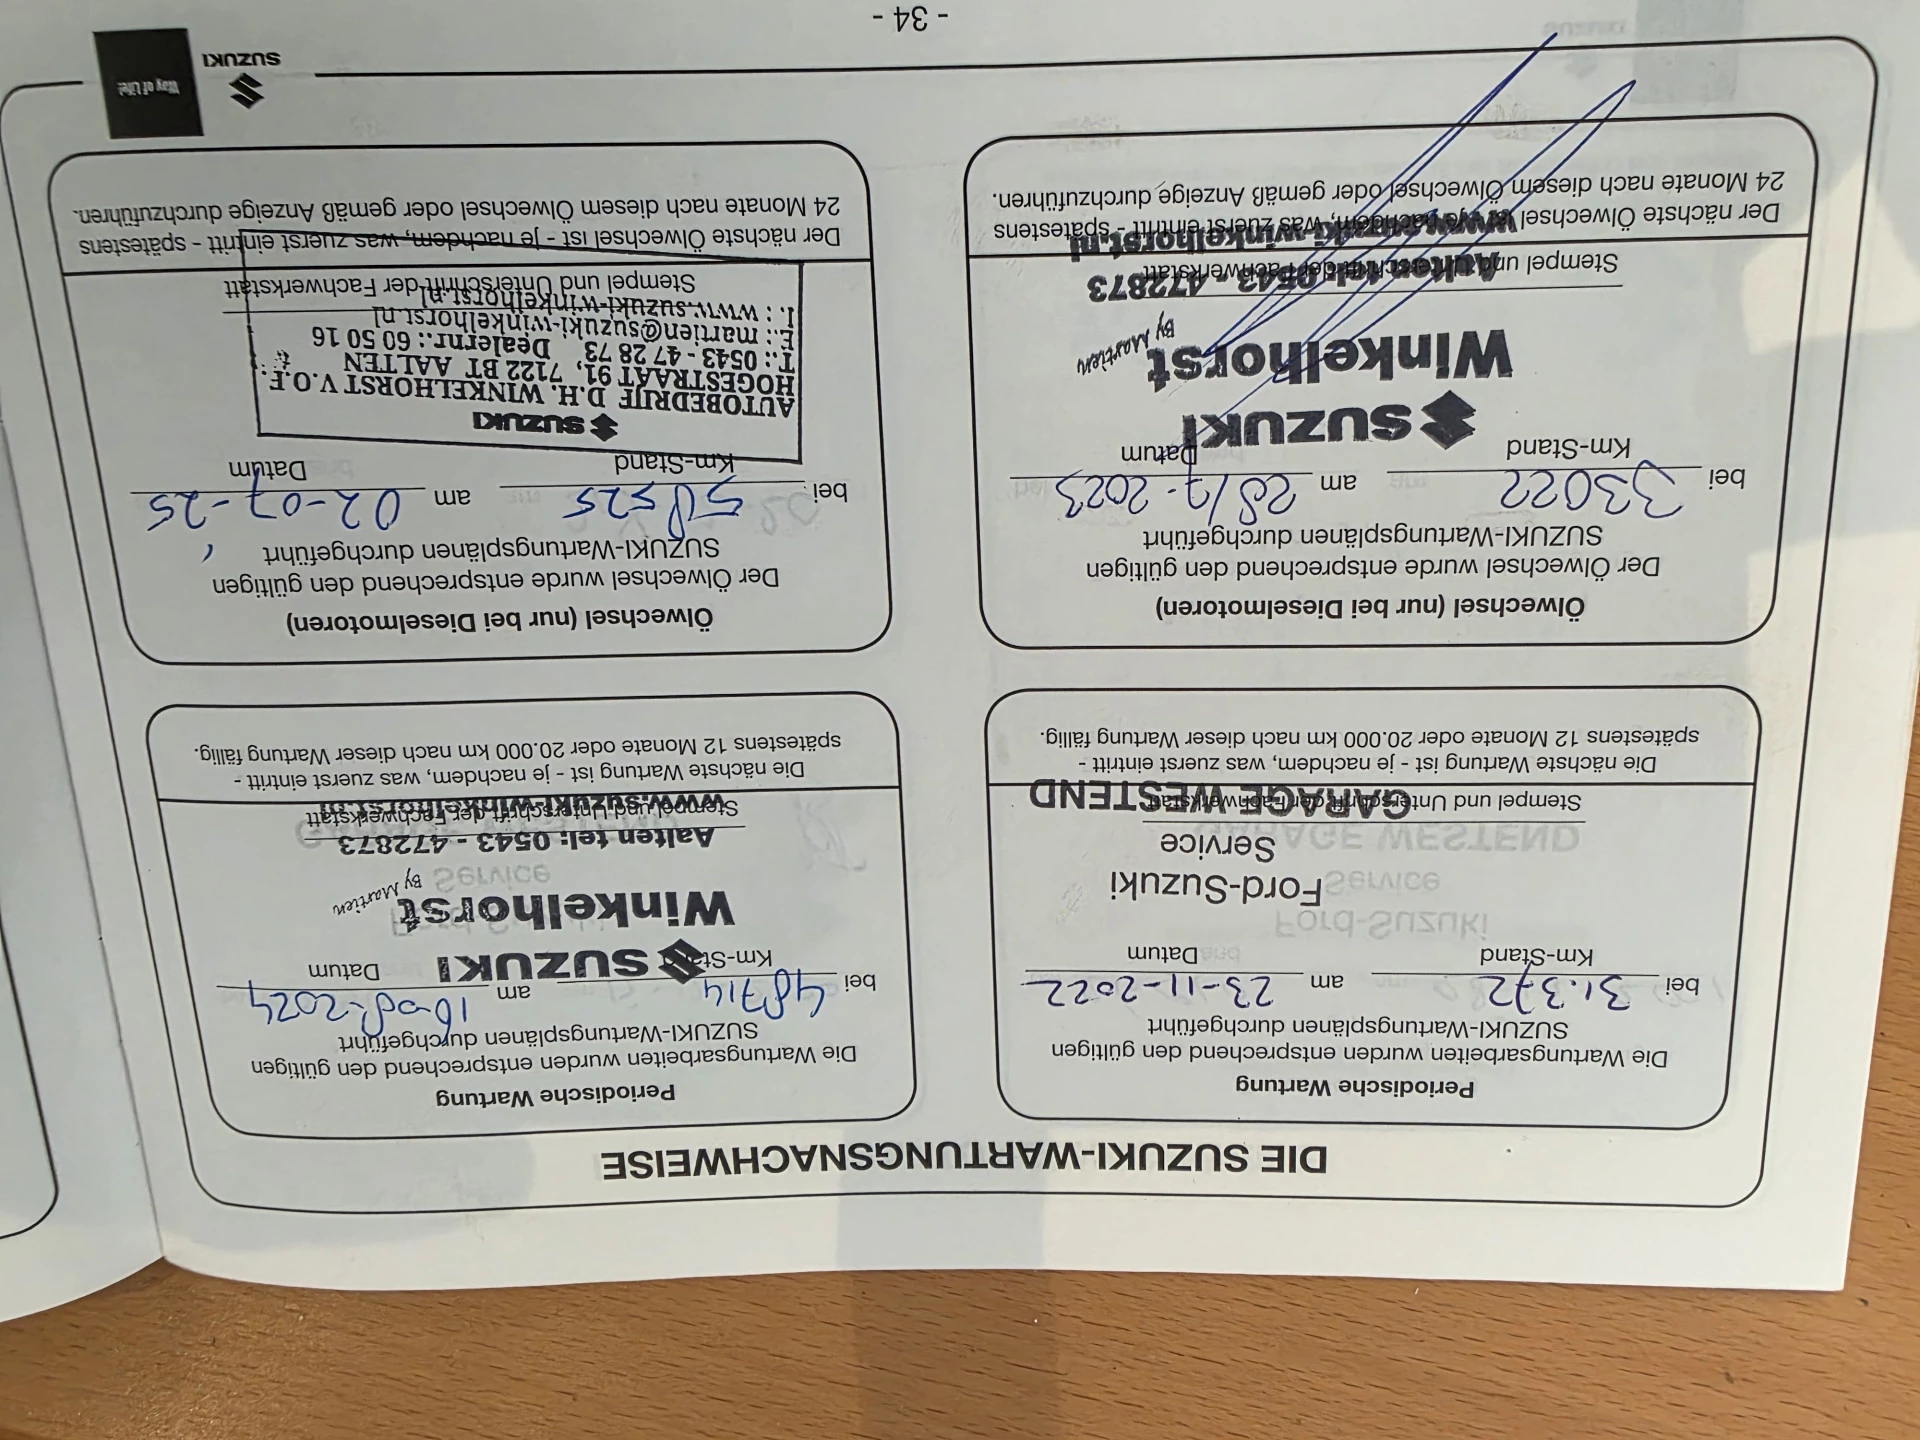 DIE SUZUKI-WARTUNGSNACHWEISE
Periodische Wartung
Die Wartungsarbeiten wurden entsprechend den gültigen
SUZUKI-Wartungsplänen durchgeführt
bei 31.372 am 23-11-2022
Km-Stand Datum
Ford-Suzuki
Service
GARAGE WESTEND
Stempel und Unterschrift der Fachwerkstatt
Die nächste Wartung ist - je nachdem, was zuerst eintritt -
spätestens 12 Monate oder 20.000 km nach dieser Wartung fällig.
Periodische Wartung
Die Wartungsarbeiten wurden entsprechend den gültigen
SUZUKI-Wartungsplänen durchgeführt
bei 48714 am 16-08-2024
Km-Stand Datum
SUZUKI
Winkelhorst
By Martien
Aalten tel: 0543 - 472873
Stempel und Unterschrift der Fachwerkstatt
www.suzuki-winkelhorst.nl
Die nächste Wartung ist - je nachdem, was zuerst eintritt -
spätestens 12 Monate oder 20.000 km nach dieser Wartung fällig.
Ölwechsel (nur bei Dieselmotoren)
Der Ölwechsel wurde entsprechend den gültigen
SUZUKI-Wartungsplänen durchgeführt
bei 33022 am 28/7-2023
Km-Stand Datum
SUZUKI
Winkelhorst
By Martien
Aalten tel: 0543 - 472873
Stempel und Unterschrift der Fachwerkstatt
www.suzuki-winkelhorst.nl
Der nächste Ölwechsel ist - je nachdem, was zuerst eintritt - spätestens
24 Monate nach diesem Ölwechsel oder gemäß Anzeige durchzuführen.
Ölwechsel (nur bei Dieselmotoren)
Der Ölwechsel wurde entsprechend den gültigen
SUZUKI-Wartungsplänen durchgeführt
bei 58525 am 02-07-25
Km-Stand Datum
SUZUKI
AUTOBEDRIJF D.H. WINKELHORST V.O.F.
HOGESTRAAT 91, 7122 BT AALTEN
T.: 0543 - 47 28 73 Dealernr.: 60 50 16
E.: martien@suzuki-winkelhorst.nl
I. : www.suzuki-winkelhorst.nl
Stempel und Unterschrift der Fachwerkstatt
Der nächste Ölwechsel ist - je nachdem, was zuerst eintritt - spätestens
24 Monate nach diesem Ölwechsel oder gemäß Anzeige durchzuführen.
SUZUKI
Way of Life!
- 34 -